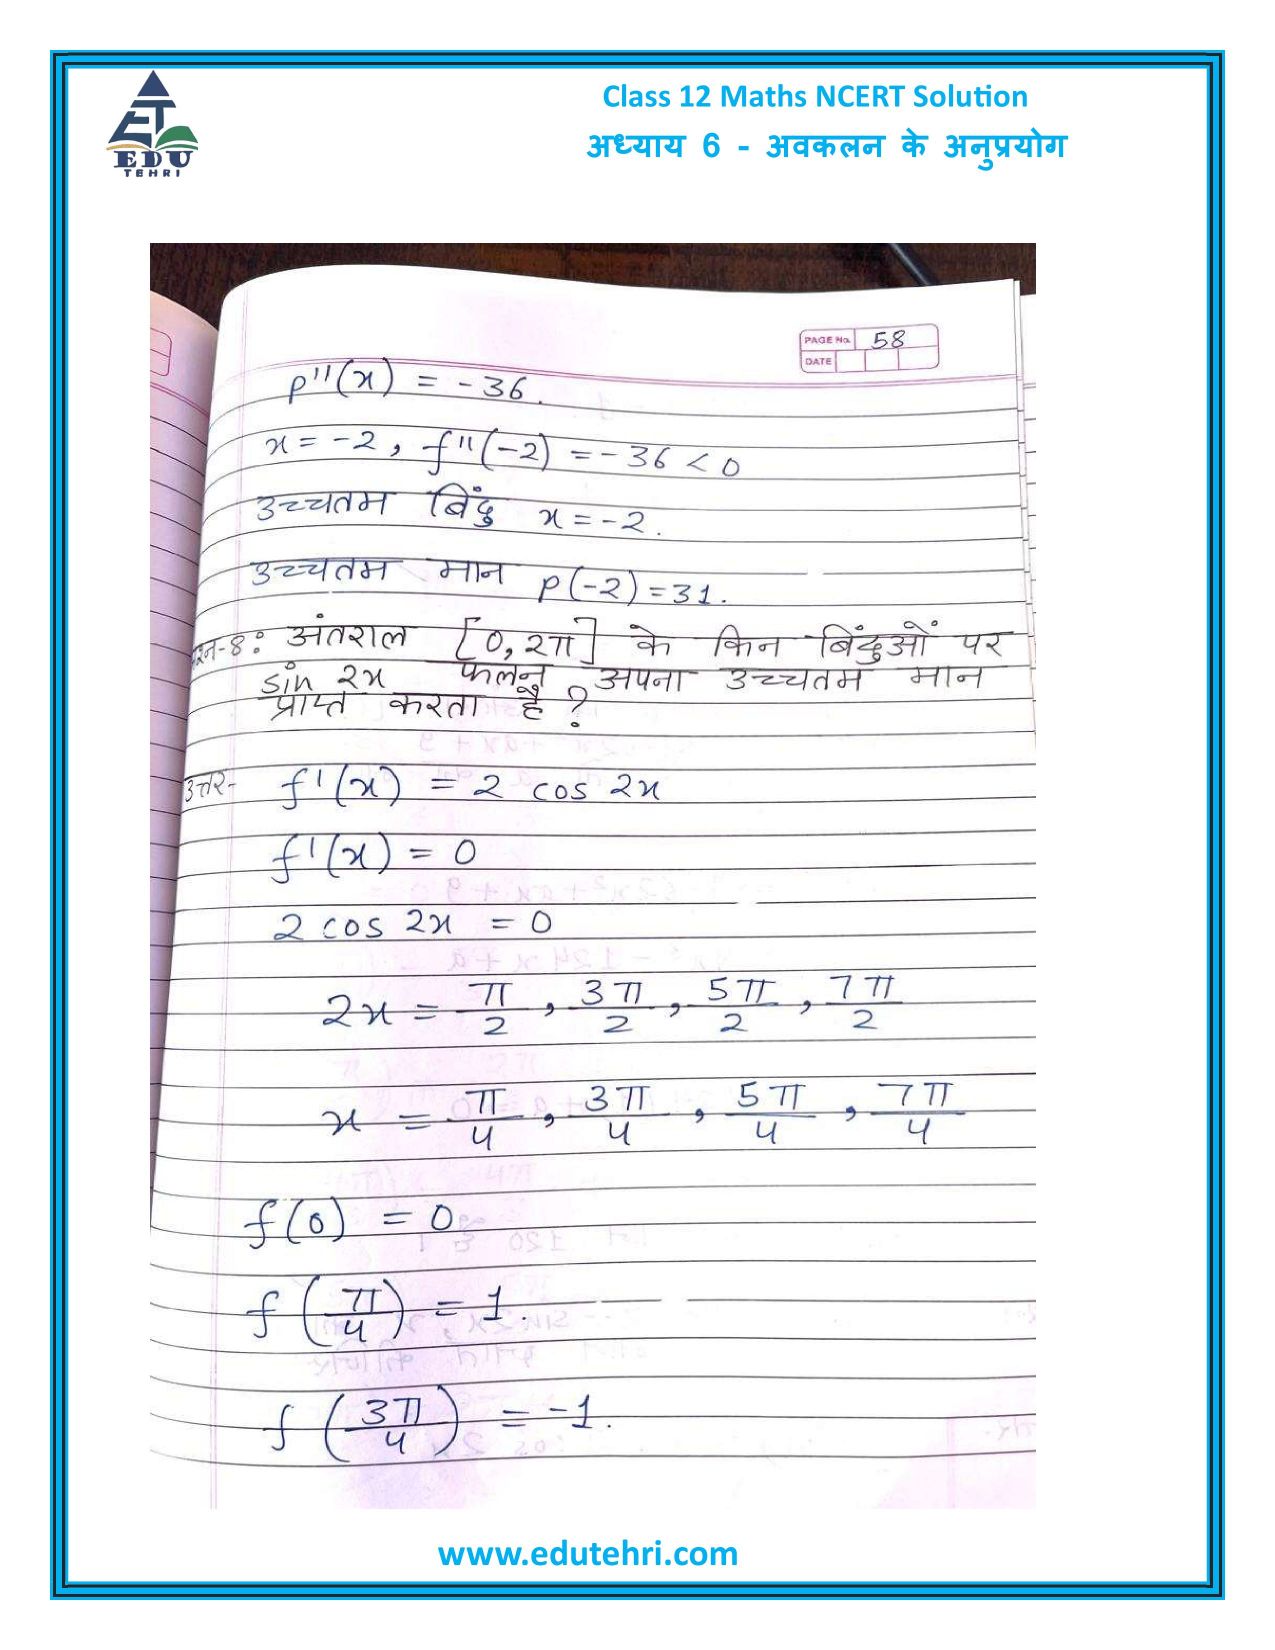 Class 12 Maths NCERT Solution
अध्याय 6 - अवकलन के अनुप्रयोग
ET
EDU
TEHRI
PAGE No. 58
DATE
p''(x) = -36.
x = -2, f''(-2) = -36 < 0
उच्चतम बिंदु x = -2.
उच्चतम मान p(-2) = 31.
प्रश्न-8: अंतराल [0, 2π] के किन बिंदुओं पर
sin 2x फलन अपना उच्चतम मान
प्राप्त करता है?
उत्तर- f'(x) = 2 cos 2x
f'(x) = 0
2 cos 2x = 0
2x = π/2, 3π/2, 5π/2, 7π/2
x = π/4, 3π/4, 5π/4, 7π/4
f(0) = 0
f(π/4) = 1.
f(3π/4) = -1.
www.edutehri.com